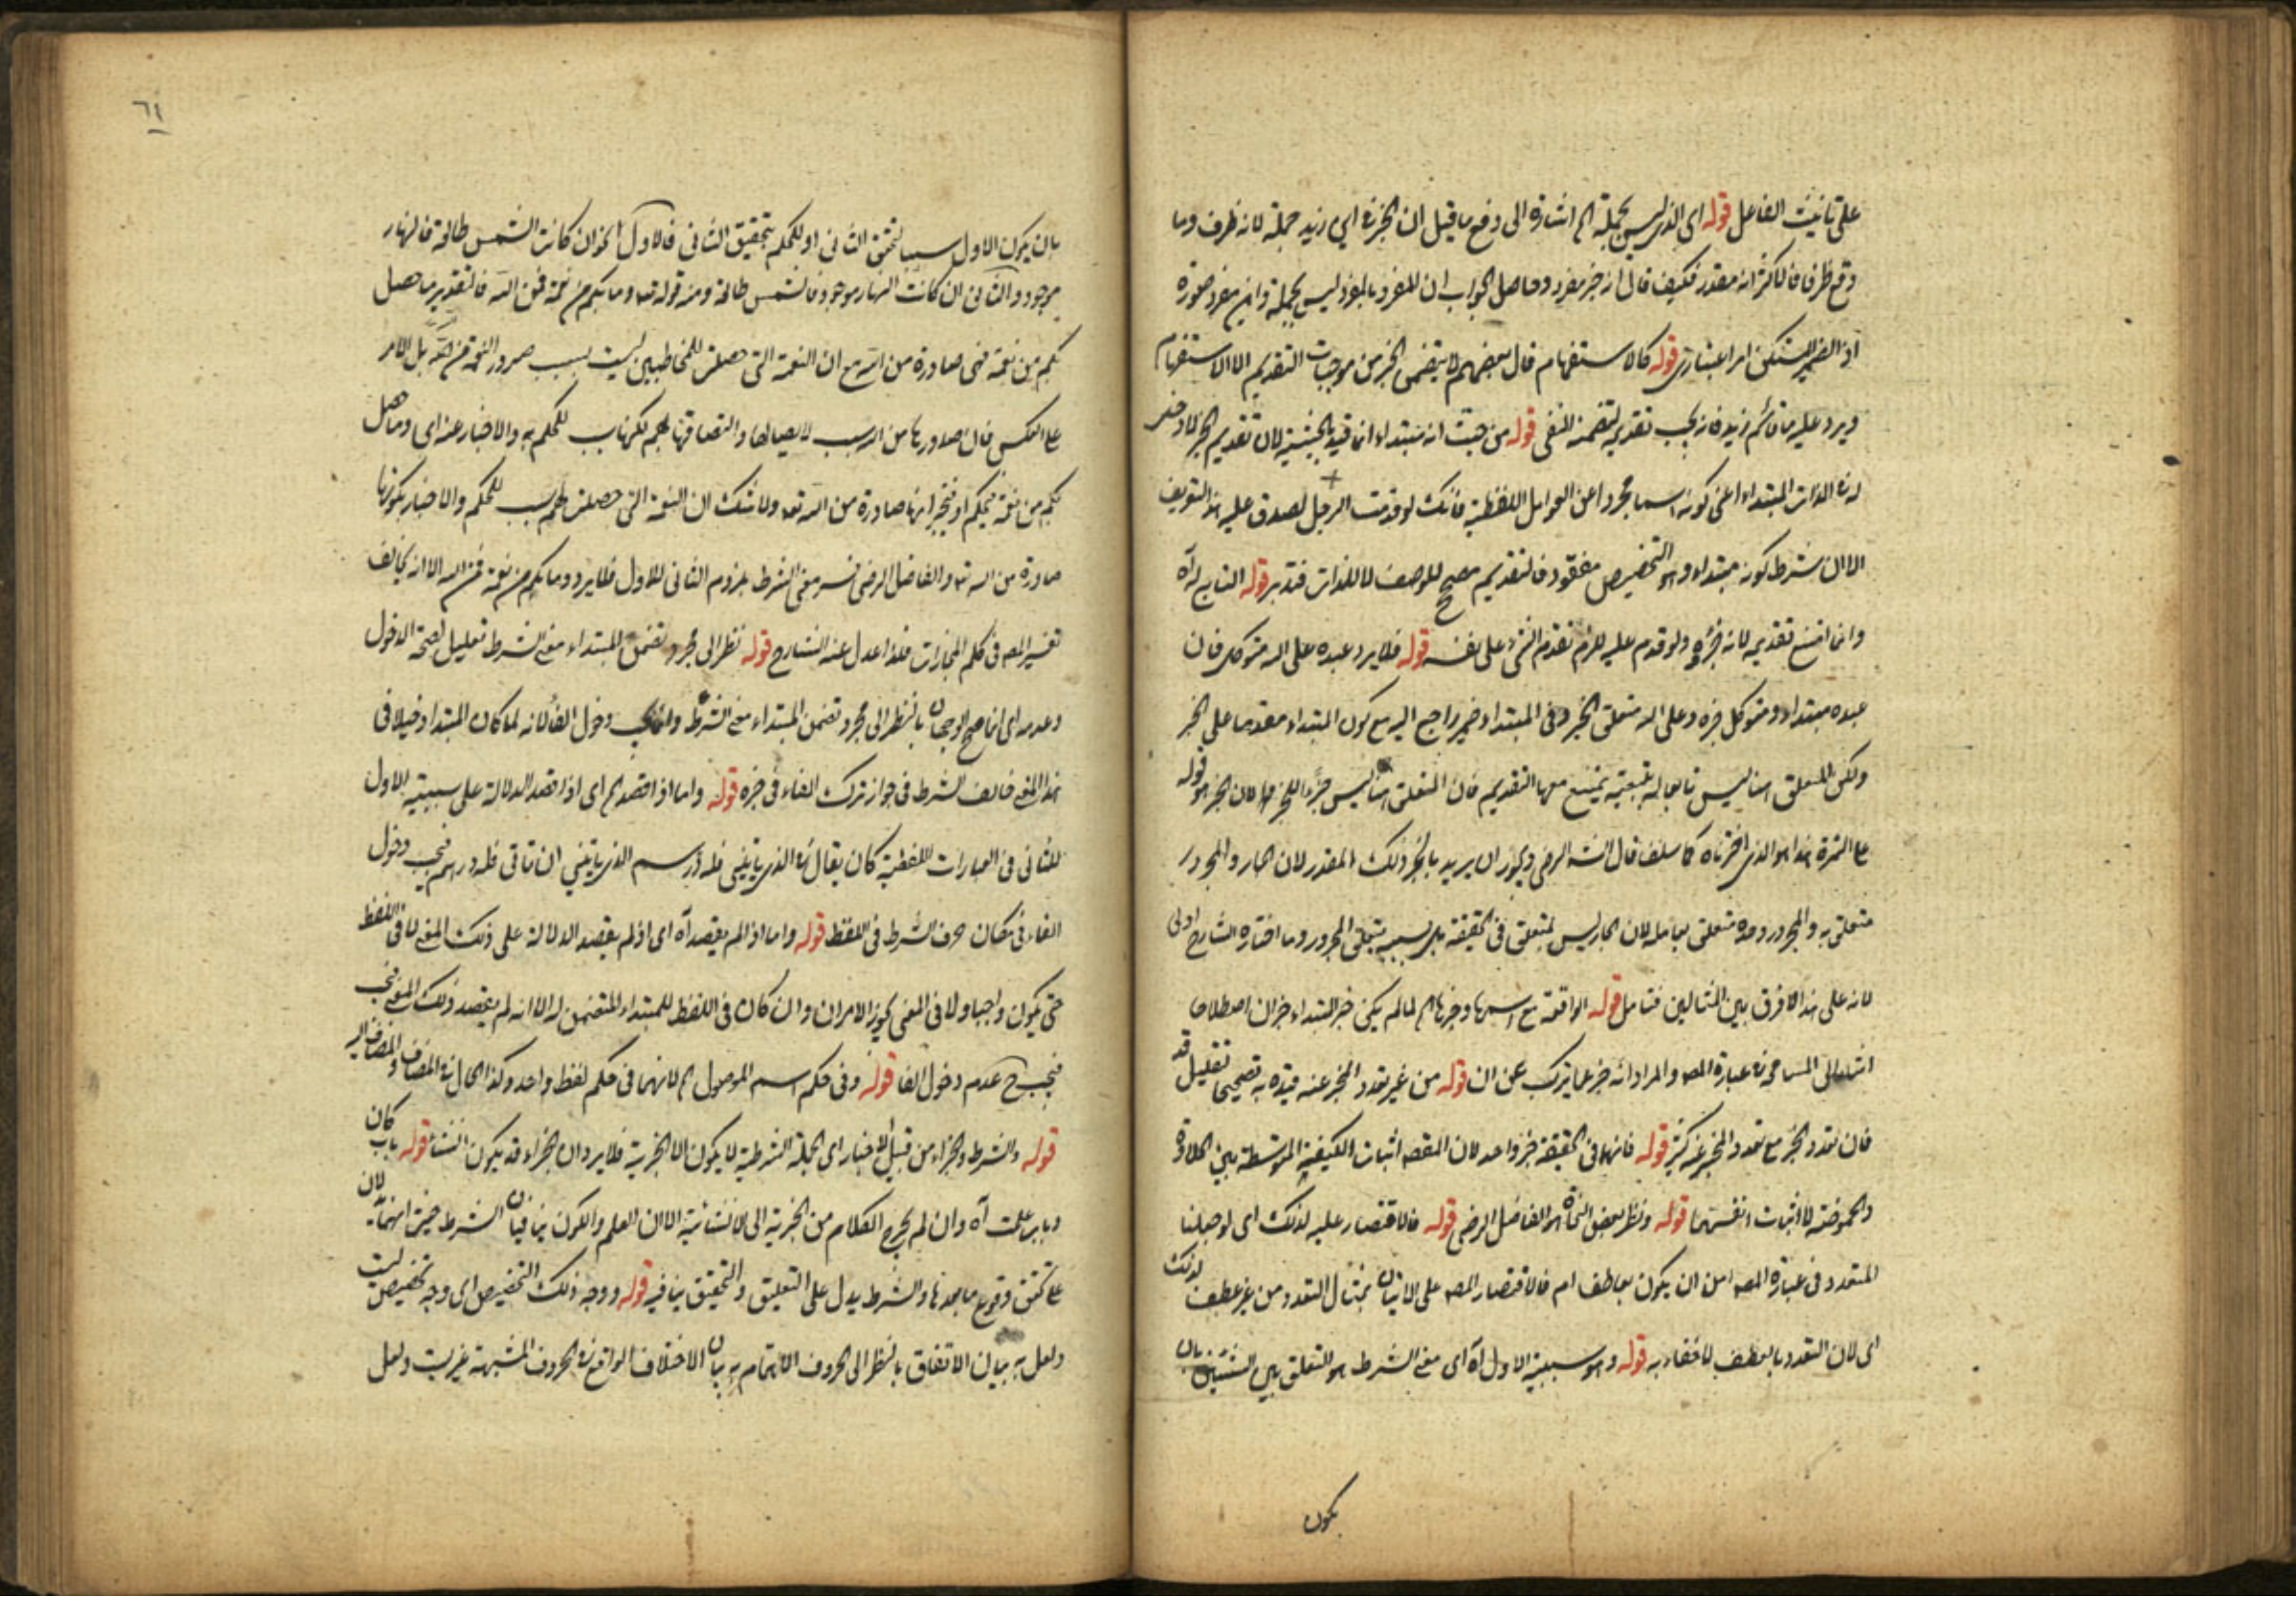 على تأنيث الفاعل قوله اى الذى ليس بجملة الخ اشارة الى دفع ما قيل ان الخبر فى اين زيد جملة لانه ظرف وما
وقع ظرفا فالاكثر انه مقدر فكيف قال انه خبر مفرد وحاصل الجواب ان المفرد بالمفرد ليس بجملة واين مفرد صورة
اذ الضمير المستكن امر اعتبارى قوله كالاستفهام قال بعضهم لا يتضمن الخبر من موجبات التقديم الا الاستفهام
ويرد عليه ما قائم زيد فانه يجب تقديمه لتضمنه النفى قوله من حيث انه مبتداء انما قيد بالحيثية لان تقديم الخبر لا دخل
له فى الذات المبتداء اعنى كونه اسما مجردا عن العوامل اللفظية فانك لو قدمت الرجل لصدق عليه هذا التعريف
الا ان شرط كونه مبتداء وهو التخصيص مفقود فالتقديم مصحح للوصف لا للذات فتدبر قوله التابع له آه
وانما امتنع تقديمه لانه جزءه ولو قدم عليه للزم تقدم الشئ على نفسه قوله فلا يرد عبده على الله متوكل فان
عبده مبتداء ومتوكل خبره وعلى الله متعلق الخبر وفى المبتداء ضمير راجع اليه مع كون المبتداء مقدما على الخبر
ولكن المتعلق هنا ليس تابعا له بتبعية يمتنع معها التقديم فان المتعلق هنا ليس جزءا للخبر لان الخبر هو قوله
على التمرة هذا هو الذى اخترناه كما سلف قال الشه الرضى ويجوز ان يريد بالخبر ذلك المقدر لان الجار والمجرور
متعلق به والمجرور وحده متعلق بعامله لان الجار ليس بمتعلق فى الحقيقة بل بسببه يتعلق المجرور وما اختاره الشارح اولى
لانه على هذا لا فرق بين المثالين فتامل قوله الواقعة مع اسمها وخبرها الخ لما لم يكن خبر المبتداء خبر ان اصطلاحا
اشار الى المسامحة فى عبارة المصه والمراد انه خبر عما يتركب عن ان قوله من غير تعدد المخبر عنه قيده به تصحيحا لتقليل قد
فان تعدد الخبر مع تعدد المخبر عنه كثير قوله فانهما فى الحقيقة خبر واحد لان المقصه اثبات الكيفية المتوسطة بين الحلاوة
والحموضة لا اثبات انفسهما قوله ونظر بعض النحاة هو الفاضل الرضى قوله فالاقتصار عليه لذلك اى لو جعلنا
المتعدد فى عبارة المصه اعم من ان يكون بعاطف ام لا فالاقتصار المصه على الاتيان بمثال التعدد من غير عطف لذلك
اى لان التعدد بالعطف لا خفاء به قوله وهو سببية الاول آه اى معنى الشرط هو التعلق بين الشيئين بان
يكون
٦١
بان يكون الاول سببا لتحقق الثانى او للحكم بتحقيق الثانى فالاول نحو ان كانت الشمس طالعة فالنهار
موجود والثانى ان كانت النهار موجود فالشمس طالعة ومنه قوله تعه وما بكم من نعمة فمن الله فالتقدير ما حصل
بكم من نعمة فهى صادرة من الله مع ان النعمة التى حصلت للمخاطبين ليست بسبب صدور النعمة من الله بل الامر
على العكس فان صدورها من الله سبب لايصالها والتصاقها بهم لكنها سبب للحكم به والاخبار عنه اى وما حصل
بكم من نعمة نحكم او نخبر انها صادرة من الله تعه ولا شك ان النعمة التى حصلت لهم سبب للحكم والاخبار بكونها
صادرة من الله تعه والفاضل الرضى فسر معنى الشرط بلزوم الثانى للاول فلا يرد وما بكم من نعمة فمن الله الا انه يخالف
تفسير المصه فى كلم المجازات فلذا عدل عنه الشارح قوله نظرا الى مجرد تضمن المبتداء معنى الشرط تعليل لصحة الدخول
وعدمه اى انما صح الوجهان بالنظر الى مجرد تضمن المبتداء معنى الشرط دخول الفاء لانه لما كان المبتداء دخيلا فى
هذا المعنى خالف الشرط فى جواز ترك الفاء فى خبره قوله واما اذا قصد الخ اى اذا قصد الدلالة على سببية الاول
للثانى فى العبارات اللفظية كان يقال فى الذى يأتينى فله درهم الذى يأتينى ان تأتى فله درهم فيجب دخول
الفاء فى مكان حرف الشرط فى اللفظ قوله واما اذا لم يقصد آه اى اذا لم يقصد الدلالة على ذلك المعنى لا فى اللفظ
حتى يكون واجبا ولا فى المعنى ليجوز الامران وان كان فى اللفظ للمبتداء المتضمن له الا انه لم يقصد ذلك المعنى فيجب
فيجب ح عدم دخول الفا قوله وفى حكم اسم الموصول الخ لانهما فى حكم لفظ واحد وكذا الحال فى المضاف والمضاف اليه
قوله والشرط والجزاء من قبيل الاخبار اى الجملة الشرطية لا يكون الا الخبرية فلا يرد ان الجزاء قد يكون انشاء قوله باب كان
وباب علمت آه وان لم يخرج الكلام من الخبرية الى الانشائية الا ان العلم والكون ينافيان الشرط حيث انهما لان
على تحقق وقوع ما بعدها والشرط يدل على التعليق والتحقيق ينافيه قوله ووجه ذلك التخصيص اى وجه تخصيص ليت
ولعل به بيان الاتفاق بالنظر الى الحروف الا لاهتمام به بيان الاختلاف الواقع فى الحروف المشبهة غير ليت ولعل